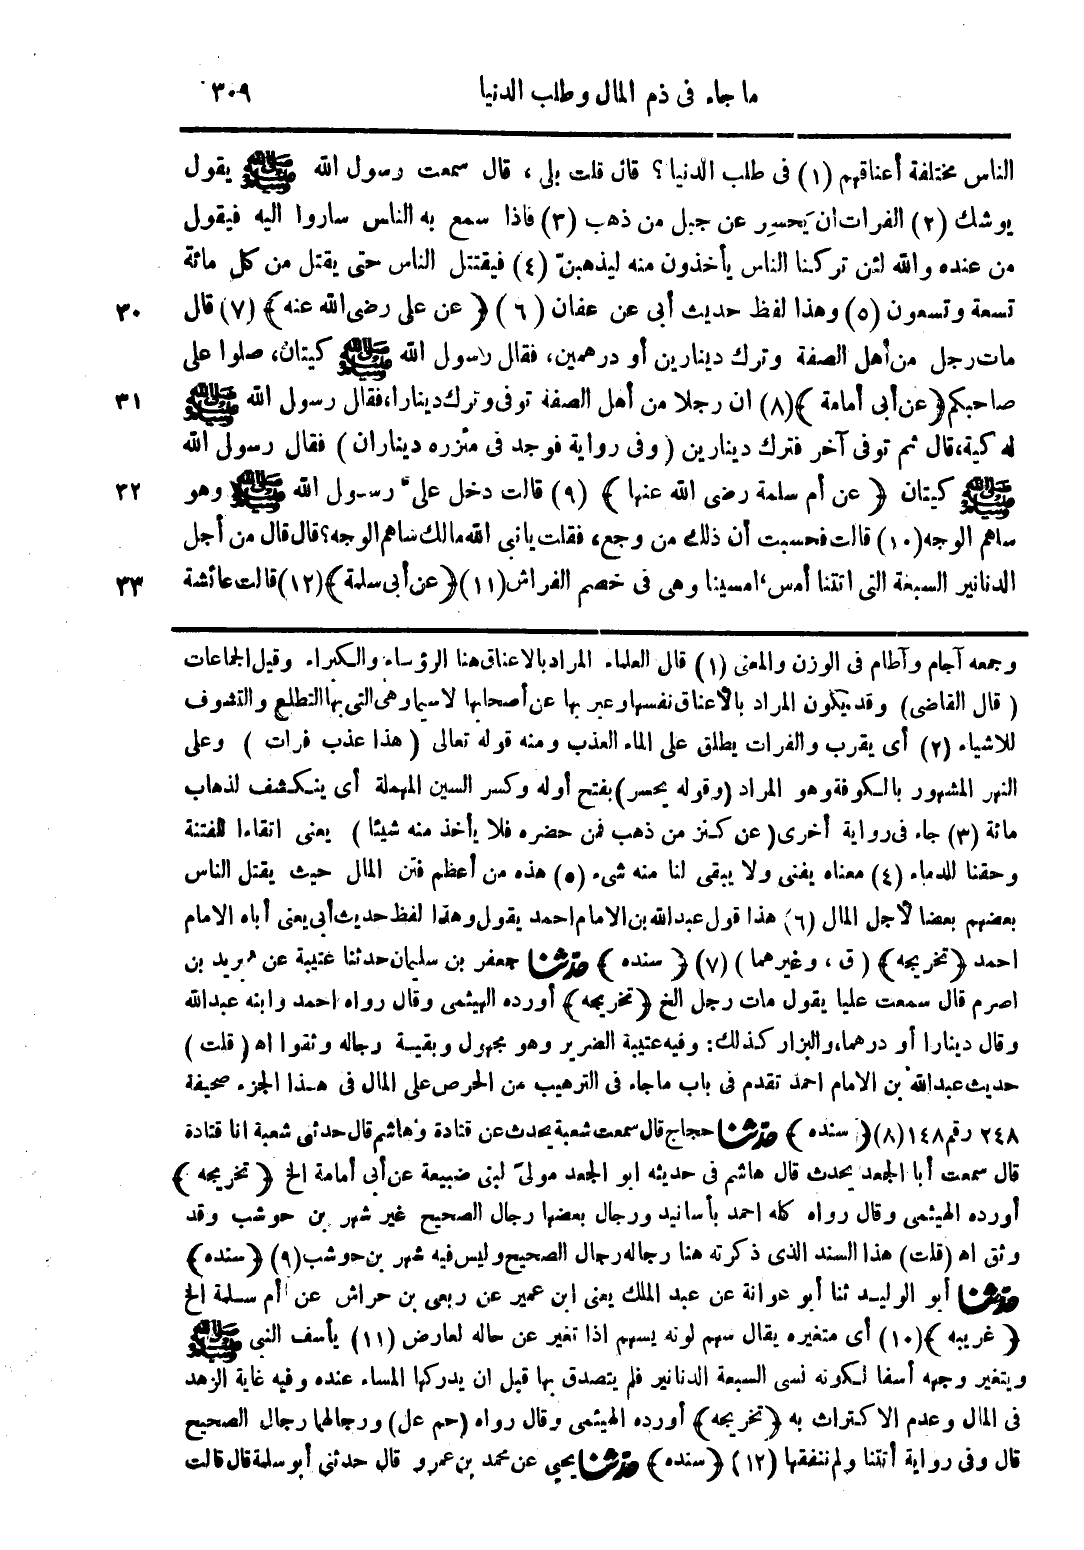 ما جاء فى ذم المال وطلب الدنيا ٣٠٩
الناس مختلفة أعناقهم (١) فى طلب الدنيا؟ قال قلت بلى، قال سمعت رسول الله ﷺ يقول
يوشك (٢) الفرات ان يَحسِر عن جبل من ذهب (٣) فاذا سمع به الناس ساروا اليه فيقول
من عنده والله لئن تركنا الناس يأخذون منه ليذهبنّ (٤) فيقتتل الناس حتى يقتل من كل مائة
تسعة وتسعون (٥) وهذا لفظ حديث أبى عن عفان (٦) ﴿ عن على رضى الله عنه ﴾ (٧) قال ٣٠
مات رجل من أهل الصفة وترك دينارين أو درهمين، فقال رسول الله ﷺ كيتان، صلوا على
صاحبكم ﴿ عن أبى أمامة ﴾ (٨) ان رجلا من أهل الصفة توفى وترك دينارا، فقال رسول الله ﷺ ٣١
له كية، قال ثم توفى آخر فترك دينارين (وفى رواية فوجد فى مئزره ديناران) فقال رسول الله
ﷺ كيتان ﴿ عن أم سلمة رضى الله عنها ﴾ (٩) قالت دخل علىّ رسول الله ﷺ وهو ٣٢
ساهم الوجه (١٠) قالت فحسبت أن ذلك من وجع، فقلت يا نبى الله مالك ساهم الوجه؟ قال قال من أجل
الدنانير السبعة التى اتتنا أمس، امسينا وهى فى خصم الفراش (١١) ﴿ عن أبى سلمة ﴾ (١٢) قالت عائشة ٣٣
وجمعه آجام وآطام فى الوزن والمعنى (١) قال العلماء المراد بالاعناق هنا الرؤساء والكبراء وقيل الجماعات
(قال القاضى) وقد يكون المراد بالأعناق نفسها وعبر بها عن أصحابها لاسيما وهى التى بها التطلع والتشوف
للاشياء (٢) أى يقرب والفرات يطلق على الماء العذب ومنه قوله تعالى (هذا عذب فرات) وعلى
النهر المشهور بالكوفة وهو المراد (وقوله يحسر) بفتح أوله وكسر السين المهملة أى ينكشف لذهاب
مائة (٣) جاء فى رواية أخرى (عن كنز من ذهب فمن حضره فلا يأخذ منه شيئا) يعنى اتقاءا للفتنة
وحقنا للدماء (٤) معناه يفنى ولا يبقى لنا منه شىء (٥) هذه من أعظم فتن المال حيث يقتل الناس
بعضهم بعضا لأجل المال (٦) هذا قول عبد الله بن الامام احمد يقول وهذا لفظ حديث أبى يعنى أباه الامام
احمد ﴿ تخريجه ﴾ (ق، وغيرهما) (٧) ﴿ سنده ﴾ حدثنا جعفر بن سليمان حدثنا عتيبة عن بريد بن
اصرم قال سمعت عليا يقول مات رجل الخ ﴿ تخريجه ﴾ أورده الهيثمى وقال رواه احمد وابنه عبد الله
وقال دينارا أو درهما، والبزار كذلك: وفيه عتيبة الضرير وهو مجهول وبقية رجاله وثقوا اه (قلت)
حديث عبد الله بن الامام احمد تقدم فى باب ما جاء فى الترهيب من الحرص على المال فى هذا الجزء صحيفة
٢٤٨ رقم ١٤٨ (٨) ﴿ سنده ﴾ حدثنا حجاج قال سمعت شعبة يحدث عن قتادة وهاشم قال حدثى شعبة انا قتادة
قال سمعت أبا الجعد يحدث قال هاشم فى حديثه ابو الجعد مولىّ لبنى ضبيعة عن أبى أمامة الخ ﴿ تخريجه ﴾
أورده الهيثمى وقال رواه كله احمد بأسانيد ورجال بعضها رجال الصحيح غير شهر بن حوشب وقد
وثق اه (قلت) هذا السند الذى ذكرته هنا رجاله رجال الصحيح وليس فيه شهر بن حوشب (٩) ﴿ سنده ﴾
حدثنا أبو الوليد ثنا أبو عوانة عن عبد الملك يعنى ابن عمير عن ربعى بن حراش عن أم سلمة الخ
﴿ غريبه ﴾ (١٠) أى متغيره يقال سهم لونه يسهم اذا تغير عن حاله لعارض (١١) يأسف النبى ﷺ
ويتغير وجهه أسفا لكونه نسى السبعة الدنانير فلم يتصدق بها قبل ان يدركها المساء عنده وفيه غاية الزهد
فى المال وعدم الاكتراث به ﴿ تخريجه ﴾ أورده الهيثمى وقال رواه (حم عل) ورجالهما رجال الصحيح
قال وفى رواية أتتنا ولم ننفقها (١٢) ﴿ سنده ﴾ حدثنا يحيى عن محمد بن عمرو قال حدثنى أبو سلمة قال قالت